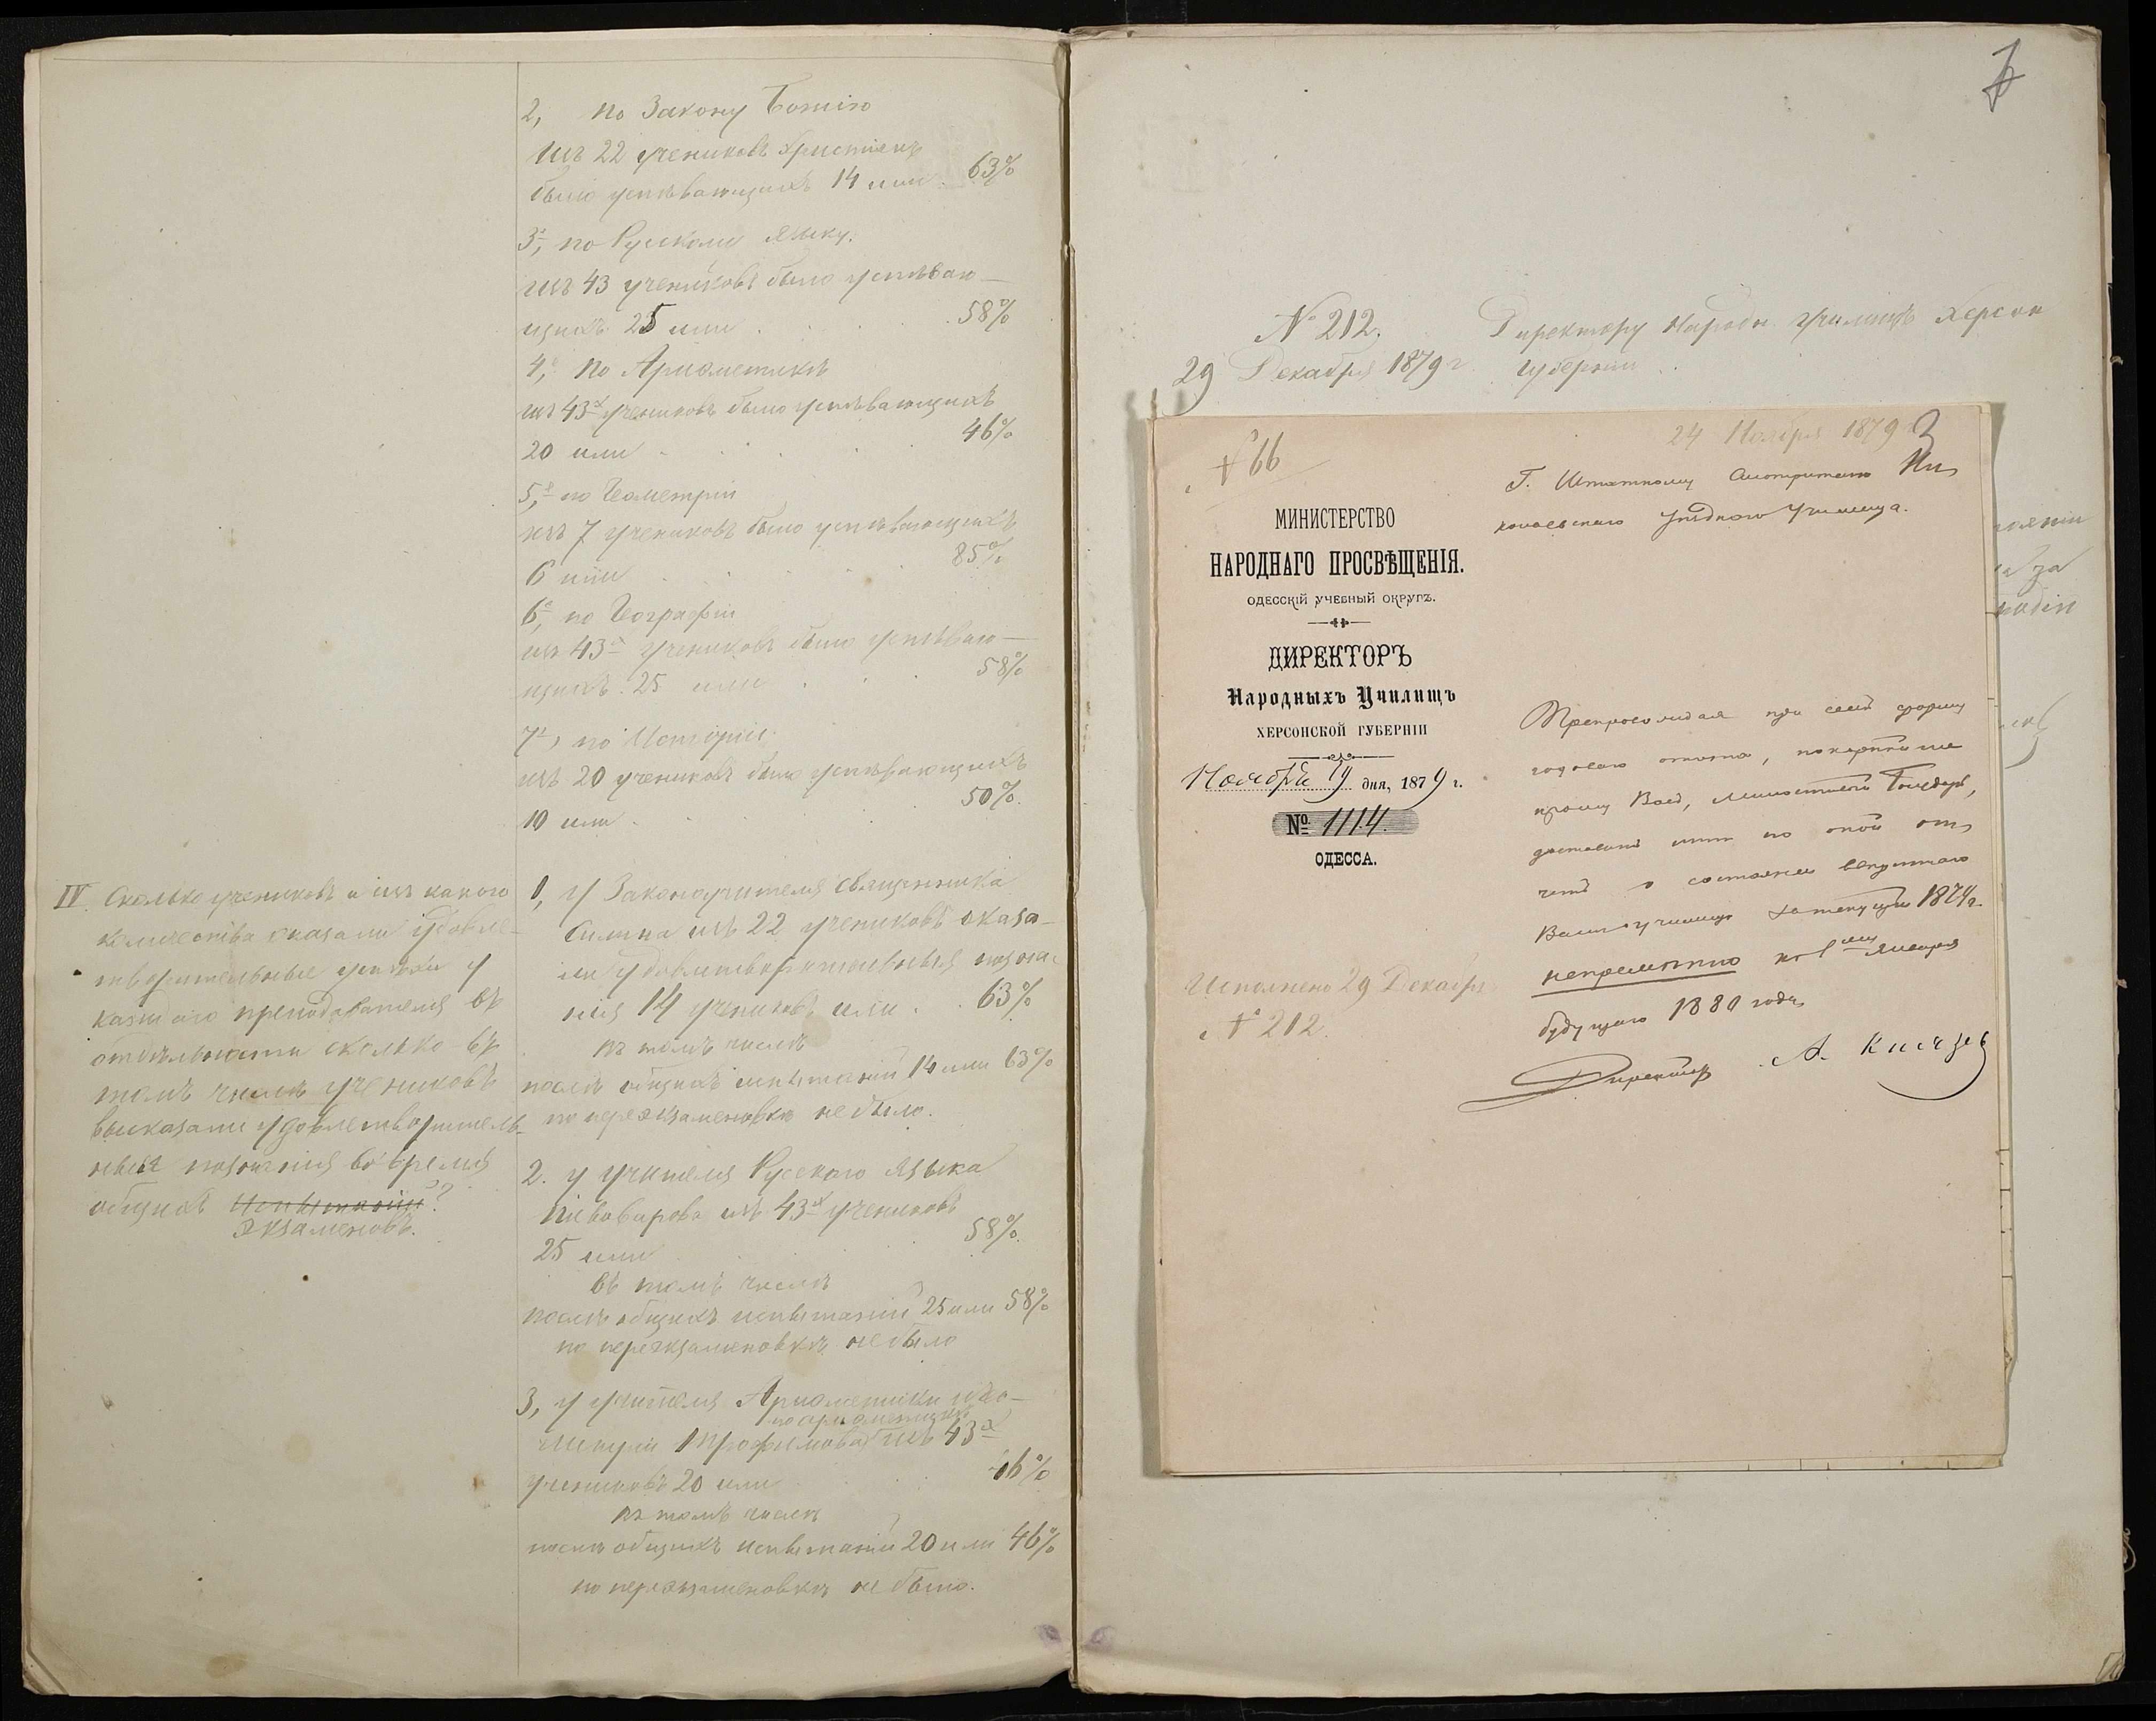 2, по Закону Божію
изъ 22 учениковъ христіанъ
было успѣвающихъ 14 или 63%
3, по Русскому языку.
изъ 43 учениковъ было успѣваю-
щихъ 25 или 58%
4, по Ариѳметикѣ
изъ 43х учениковъ было успѣвающихъ
20 или 46%
5, по Геометріи
изъ 7 учениковъ было успѣвающихъ
6 или 85%
6, по Географіи
изъ 43х учениковъ было успѣваю-
щихъ 25 или 58%
7, по Исторіи.
изъ 20 учениковъ было успѣвающихъ
10 или 50%.
IV. Сколько учениковъ и изъ какого
количества оказали удовле-
творительные успѣхи у
каждаго преподавателя въ
отдѣльности сколько въ
томъ числѣ учениковъ
выказали удовлетворитель-
ныя познанія во время
общихъ испытаній?
экзаменовъ.
1, у Законоучителя священника
изъ 22 учениковъ оказа-
ли удовлетворительныя позна-
нія 14 учениковъ или 63%
въ томъ числѣ
послѣ общихъ испытаній 14 или 63%
по переэкзаменовкѣ не было.
2. у учителя Русскаго языка
Пивоварова изъ 43х учениковъ
25 или 58%.
въ томъ числѣ
послѣ общихъ испытаній 25 или 58%
по переэкзаменовкѣ не было
3, у учителя Ариѳметики и Гео-
по ариѳметикѣ
метріи Трофимова изъ 43х
учениковъ 20 или 46%
въ томъ числѣ
послѣ общихъ испытаній 20 или 46%
по переэкзаменовкѣ не было.
№ 212.
29 Декабря 1879 г.
Директору Народн. Училищъ Херсон
губерніи
24 Ноября 1879
3
№ 66
Г. Штатному Смотрителю Ни-
колаевскаго Уѣзднаго Училища.
МИНИСТЕРСТВО
НАРОДНАГО ПРОСВѢЩЕНІЯ.
ОДЕССКІЙ УЧЕБНЫЙ ОКРУГЪ.
ДИРЕКТОРЪ
Народныхъ Училищъ
ХЕРСОНСКОЙ ГУБЕРНІИ
Ноября 19 дня, 1879 г.
№ 1114.
ОДЕССА.
Препровождая при семъ форму
годоваго отчета, покорнѣйше
прошу Васъ, Милостивый Государь,
доставить мнѣ по оной от-
четъ о состояніи ввѣреннаго
Вамъ училища за текущій 1879 г.
непремѣнно къ 1му Января
будущаго 1880 года.
Директоръ А. Князев
Исполнено 29 Декабря
№ 212.